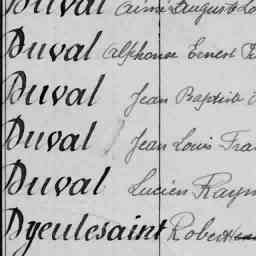 Duval Aimé Auguste
Duval Alphonse Ernest
Duval Jean Baptiste
Duval Jean Louis
Duval Lucien
Dyeulesaint Robert